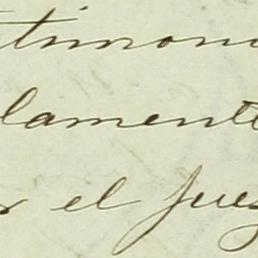 timoni
lamente
el Juez